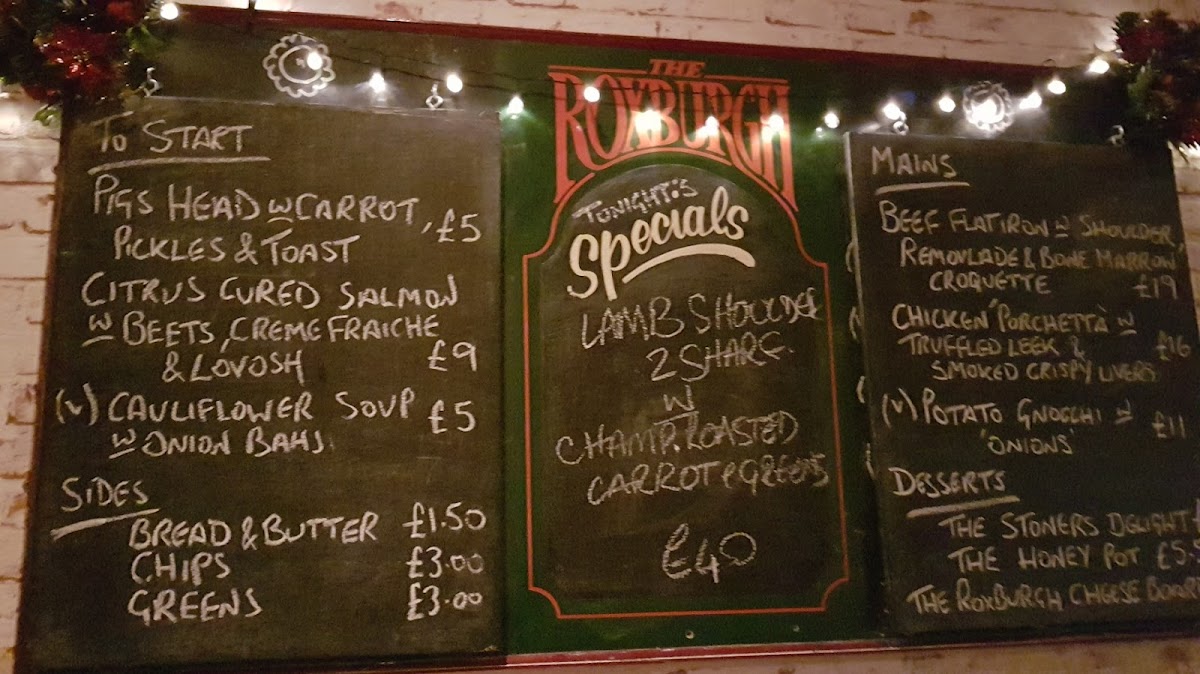 TO START
PIGS HEAD W CARROT,
PICKLES & TOAST £5
CITRUS CURED SALMON
W BEETS, CREME FRAICHE
& LOVOSH £9
(V) CAULIFLOWER SOUP £5
W ONION BAHJ
SIDES
BREAD & BUTTER £1.50
CHIPS £3.00
GREENS £3.00
THE
ROXBURGH
TONIGHT'S
Specials
LAMB SHOULDER
2 SHARE
W
CHAMP, ROASTED
CARROT & GREENS
£40
MAINS
BEEF FLATIRON W SHOULDER,
REMOULADE & BONE MARROW
CROQUETTE £19
CHICKEN 'PORCHETTA' W
TRUFFLED LEEK & £16
SMOKED CRISPY LIVERS
(V) POTATO GNOCCHI W £11
'ONIONS'
DESSERTS
THE STONERS DELIGHT
THE HONEY POT £5.
THE ROXBURGH CHEESE BOAR